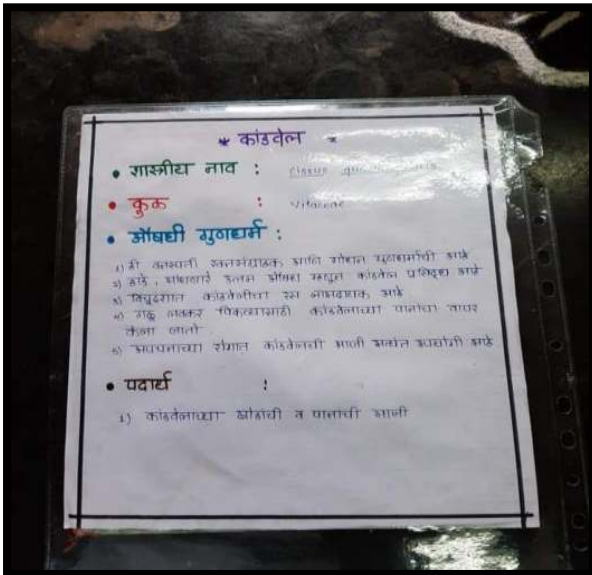 * कांडवेल *
• शास्त्रीय नाव :
• कुळ : Vitaceae
• औषधी गुणधर्म :
1) ही वनस्पती रक्तसंग्राहक आणि शोधन गुणधर्माची आहे.
2) हाडे सांधणारे उत्तम औषध म्हणून कांडवेल प्रसिद्ध आहे
3) कांडवेलीचा रस लाभदायक आहे
4) गळू लवकर पिकव्यासाठी कांडवेलाच्या पानांचा वापर
केला जातो.
5) अपचनाच्या रोगात कांडवेलची भाजी अत्यंत उपयोगी आहे
• पदार्थ :
1) कांडवेलाच्या खोडांची व पानांची भाजी